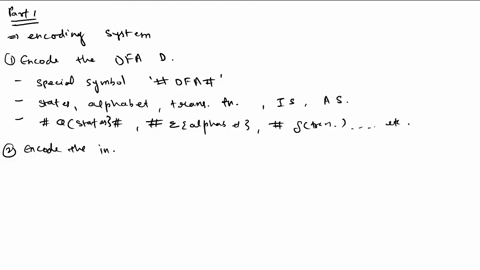 Part 1
⇒ encoding system
① Encode the DFA D.
- special symbol '# DFA#'
- states, alphabet, trans. fn. , IS, AS.
- # Q{states}# , # Σ{alphabet}, # δ(tran.) .... etc.
② Encode the in.